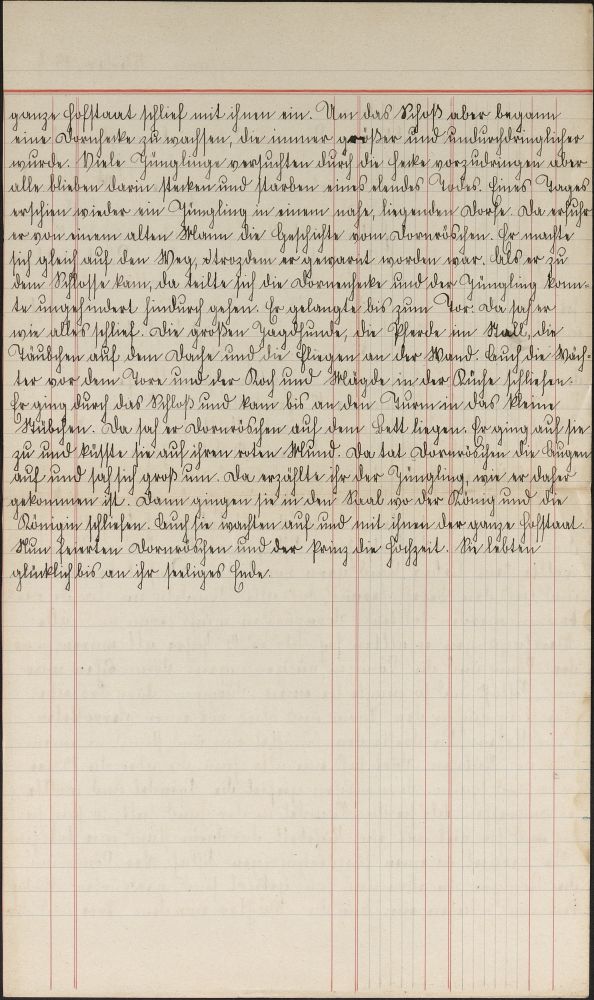 ganze Hofstaat schlief mit ihnen ein. Um das Schoß aber begann
eine Dornhecke zu wachsen, die immer größer und undurchdringlicher
wurde. Viele Jünglinge versuchten durch die Hecke vorzudringen aber
alle blieben darin stecken und starben eines elendes Todes. Eines Tages
erschien wieder ein Jüngling in einem nahe, liegenden Dorfe. Da erfuhr
er von einem alten Mann die Geschichte vom Dornröschen. Er machte
sich gleich auf den Weg, trozdem er gewarnt worden war. Als er zu
dem Schlosse kam, da teilte sich die Dornenhecke und der Jüngling konn-
te ungehindert hindurch gehen. Er gelangte bis zum Tor. Da sah er
wie alles schlief. Die großen Jagdhunde, die Pferde im Stall, die
Täubchen auf dem Dache und die Fliegen an der Wand. Auch die Wäch-
ter vor dem Tore und der Koch und Mägde in der Küche schliefen.
Er ging durch das Schloß und kam bis an den Turm in das kleine
Stübchen. Da sah er Dornröschen auf dem Bett liegen. Er ging auf sie
zu und küsste sie auf ihren roten Mund. Da tat Dornröschen die Augen
auf und sah sich groß um. Da erzählte ihr der Jüngling, wie er daher
gekommen ist. Dann gingen sie in den Saal wo der König und die
Königin schliefen. Auch sie wachten auf und mit ihnen der ganze Hofstaat.
Nun feierten Dornröschen und der Prinz die Hochzeit. Sie lebten
glücklich bis an ihr seeliges Ende.